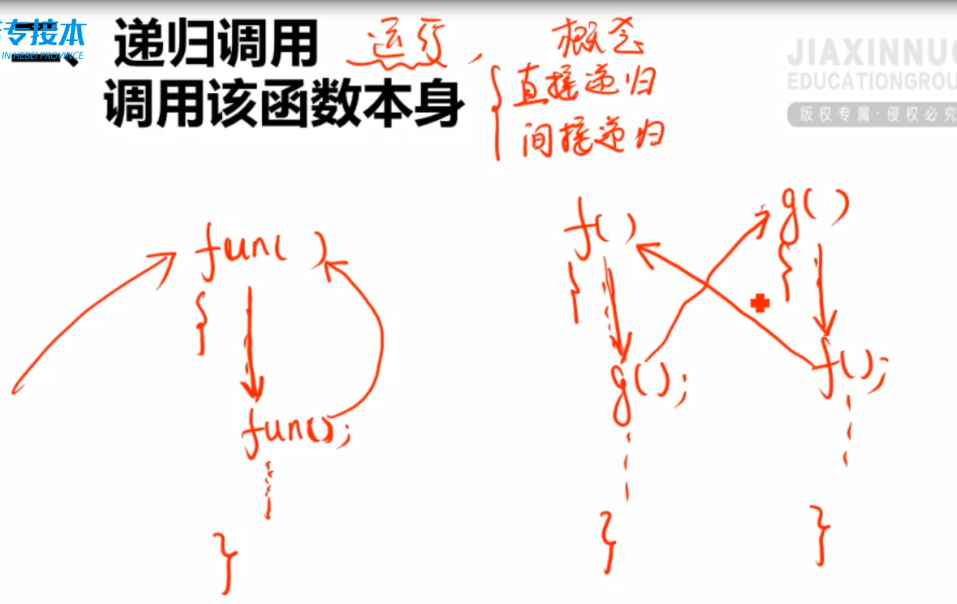 专接本
IN HEBEI PROVINCE
、递归调用 运行, 概念
调用该函数本身 { 直接递归
间接递归
JIAXINNUO
EDUCATIONGROU
版权专属·侵权必究
func( )
{
func();
}
f( )
{
g();
}
g( )
{
f();
}